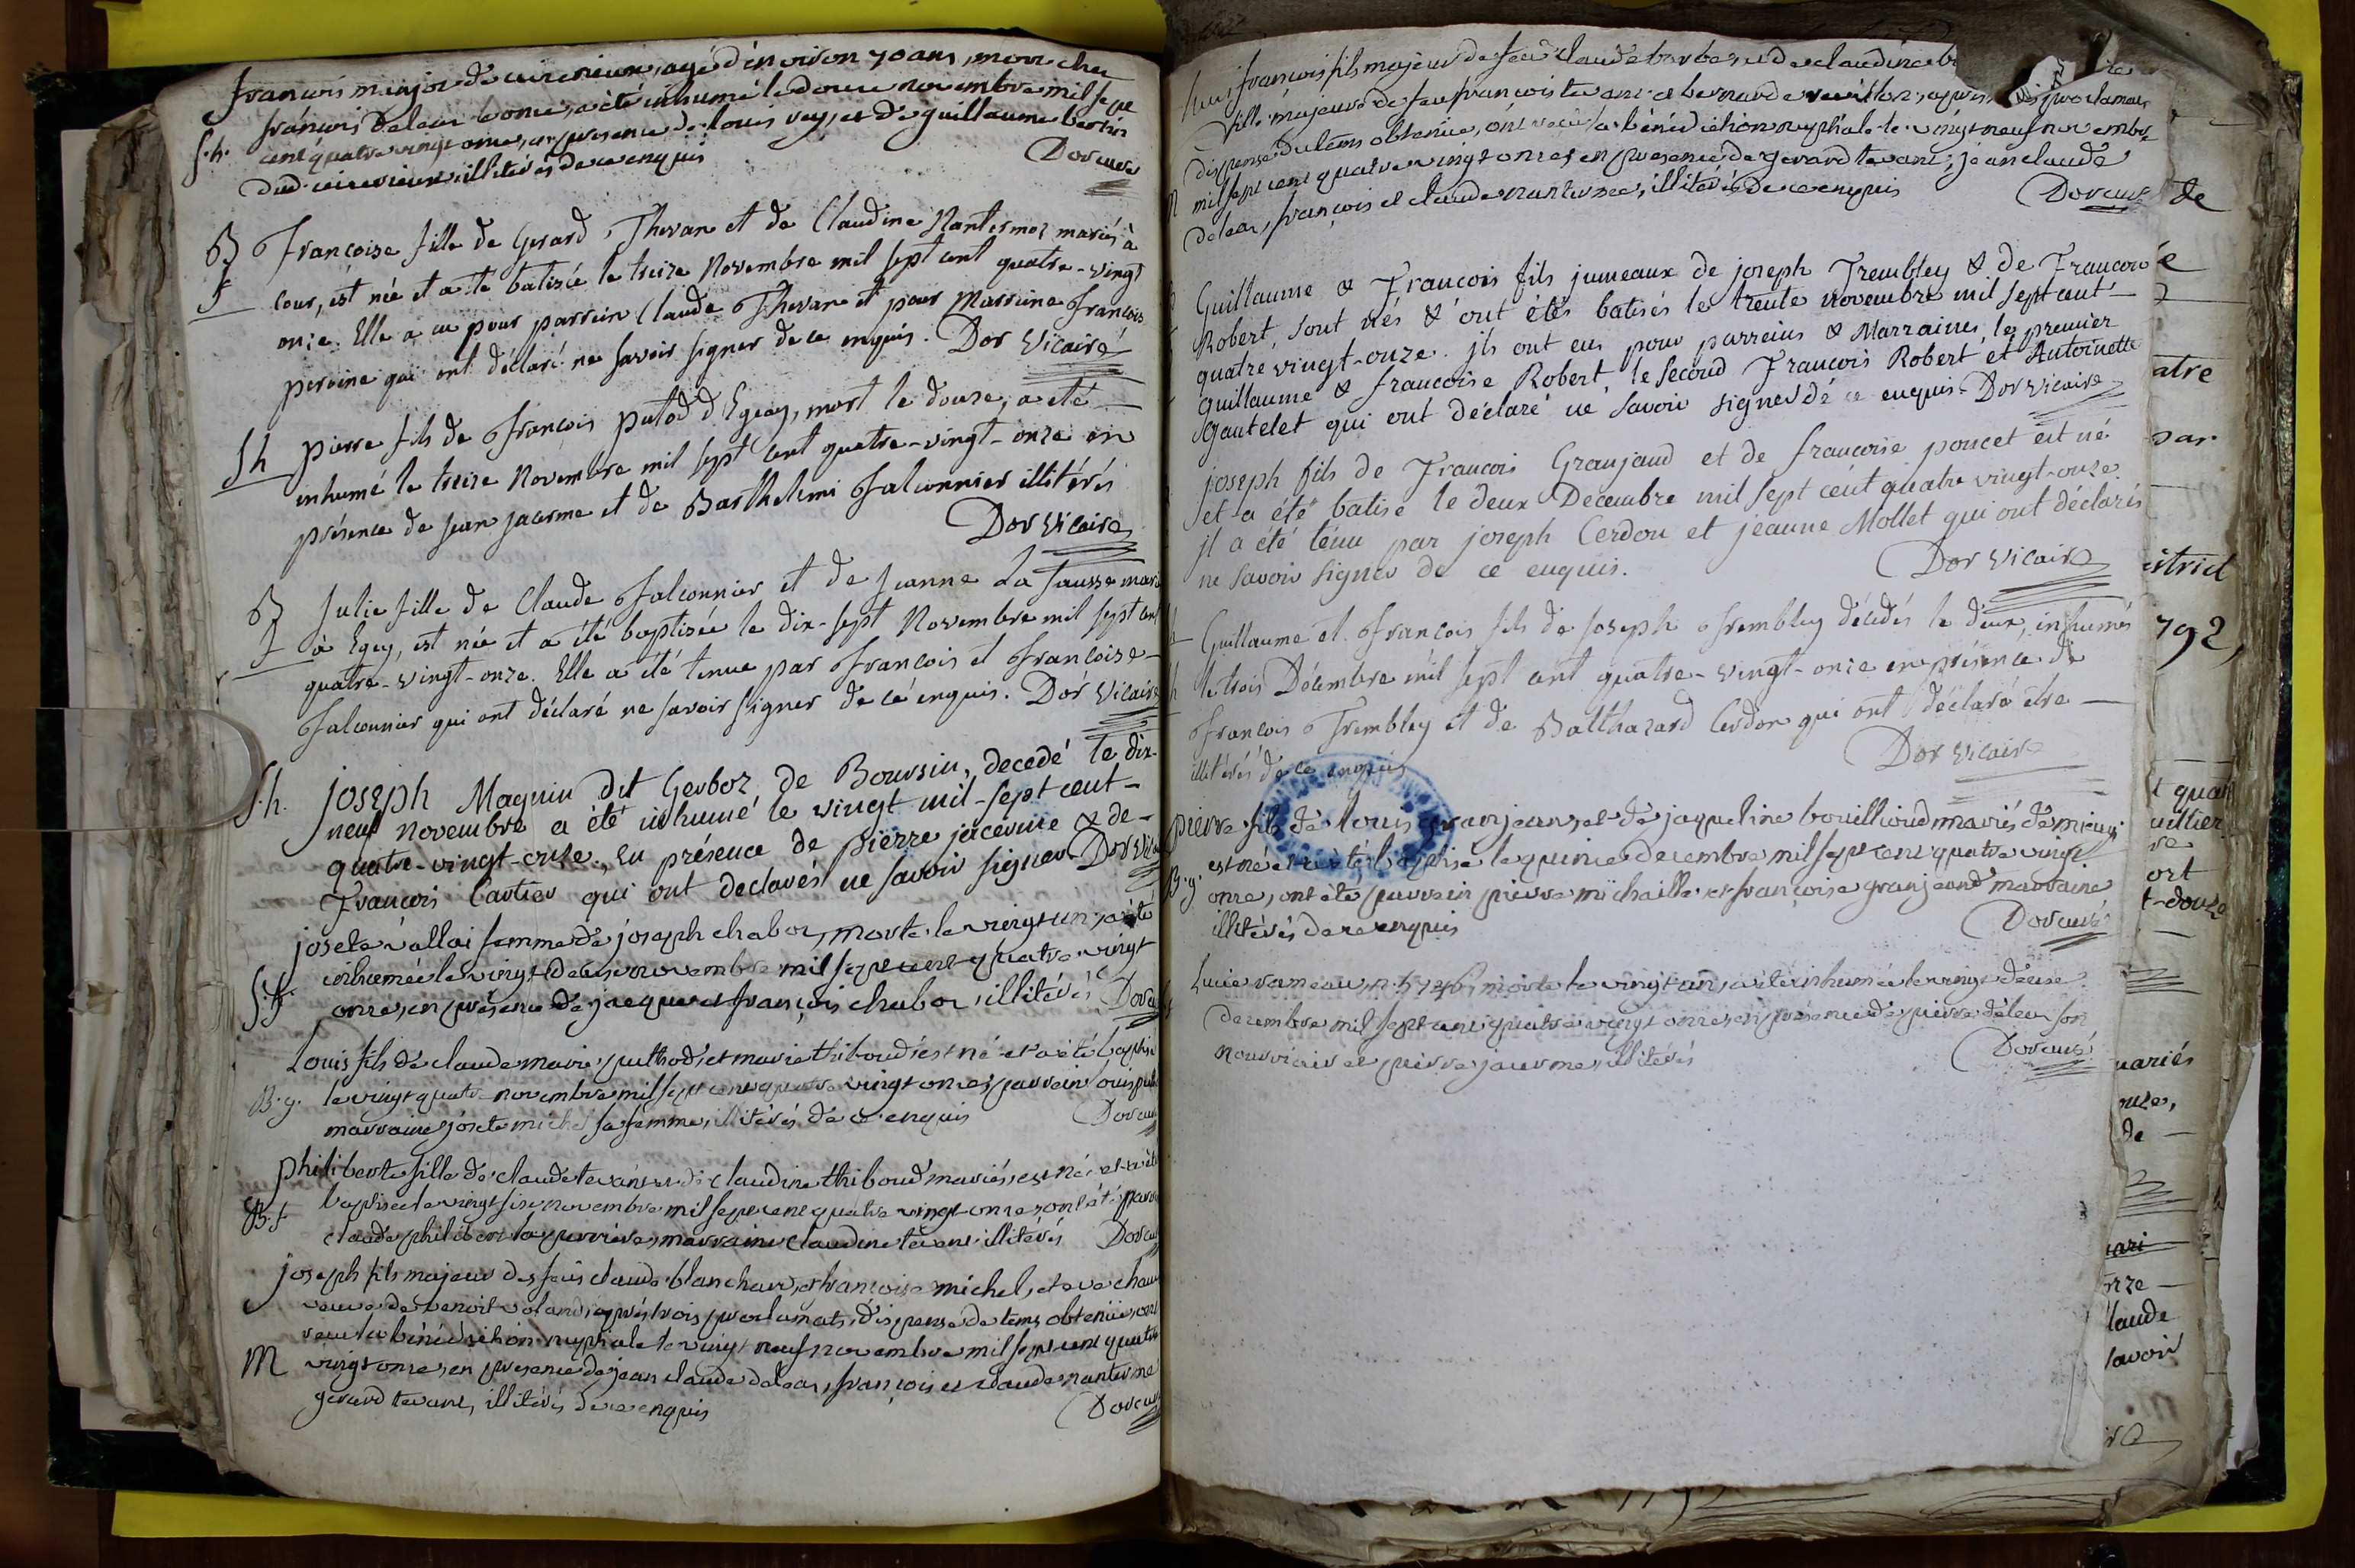 françois minjoz de cuirieux, agé d'environ 70 ans, mort chez
françois Deleaz le onze, a été inhumé le douze novembre mil sept
S.h. cent quatre vingt onze, en presence de louis rey, et de guillaume
dud. cuirieux illitérés de ce enquis Dor curé
B Françoise fille de Gerard Thevan et de Claudine Nantermoz mariés à
f Cour, est née et a été batisée le treize Novembre mil sept cent quatre-vingt
onze. Elle a eu pour parrein Claude Thevan et pour Marraine François
peroine qui ont déclaré ne savoir signer de ce enquis. Dor Vicaire
Sh pierre fils de François putod d'Egieu, mort le douze, a été
inhumé le treize Novembre mil sept cent quatre-vingt-onze en
présence de jean jacerme et de Barthelemi Falconnier illitérés
Dor Vicaire
B Julie fille de Claude Falconnier et de Jeanne La Fausse mariés
f à Egieu, est née et a été baptisée le dix-sept Novembre mil sept cent
quatre-vingt-onze. Elle a été tenue par François et Françoise
Falconnier qui ont déclaré ne savoir signer de ce enquis. Dor Vicaire
S.h. joseph Maguin dit Gerboz de Boursin, decedé le dix-
neuf novembre a été inhumé le vingt mil-sept cent-
quatre-vingt-onze, En présence de Pierre jacerme & de-
François Cartier qui ont declarés ne savoir signer Dor Vic
josete vallai femme de joseph chaboz, morte le vingt un, a été
inhumée le vingt deux novembre mil sept cent quatre vingt
S.f. onze, en présence de jacques et françois chaboz, illitérés Dor cu
Louis fils de claude marie puthod, et marie thiboud, est né et a été baptisé
B.g. le vingt quatre novembre mil sept cent quatre vingt onze, parrein louis
marraine josete michel sa femme, illitérés de ce enquis Dor cu
philiberte fille de claude tevan et de claudine thiboud mariés, est née et a été
B.f baptisée le vingt six novembre mil sept cent quatre vingt onze, ont été parrein
claude philibert la perrière, marraine claudine tevant illitérés Dor cu
joseph fils majeur des feus claude blanchard, et françoise michel, et
veuve de benoit voland, après trois proclamats, dispense de tems obtenüe, ont
recu la bénédiction nuptiale le vingt neuf novembre mil sept cent quatre
M vingt onze, en presence de jean claude deleaz, françois et claude nanterme
gerard tevant, illitérés de ce enquis Dor cur
françois fils majeur de feu claude barbe, et de claudine
fille majeure de feu françois tevant et bernarde revillon, apres proclamats
dispense du tems obtenüe, ont recu la bénédiction nuptiale le vingt neuf novembre
M mil sept cent quatre vingt onze, en presence de gerard tevant, jean claude
deleaz, françois et claude nanterme, illitérés de ce enquis Dor curé
Guillaume & François fils jumeaux de joseph Trembley & de Françoise
Robert, sont nés & ont étés batisés le trente novembre mil sept cent
quatre vingt-onze. jls ont eus pour parreins & Marraines les premier
guillaume & françoise Robert, le second François Robert et Antoinette
Gautelet qui ont déclaré ne savoir signer de ce enquis. Dor vicaire
joseph fils de François Granjand et de françoise poncet est né
et a été batisé le deux Decembre mil sept cent quatre vingt-onze.
jl a été tenu par joseph Cerdon et jeanne Mollet qui ont déclarés
ne savoir signer de ce enquis. Dor Vicaire
Guillaume et François fils de Joseph Trembley décédés le deux, inhumés
le trois Décembre mil sept cent quatre-vingt-onze en présence de
François Trembley et de Balthazard Cerdon qui ont déclaré être
illitérés de ce enquis Dor Vicaire
pierre fils de louis granjean, et de jaqueline bouillioud mariés de
est né et a été baptisé le quinze decembre mil sept cent quatre vingt
B.g. onze, ont été parrein pierre michaille et françoise granjeand marraine
illitérés de ce enquis Dor curé
Lucie rameau, morte le vingt un, a été inhumée le vingt deux
decembre mil sept cent quatre vingt onze, en présence de pierre deleaz son
nourricier et pierre jaurme, illitérés Dor curé
de
atre
par
istrict
792,
uillier
ort
t-douze
mariés
onze,
de
onze
laude
savoir